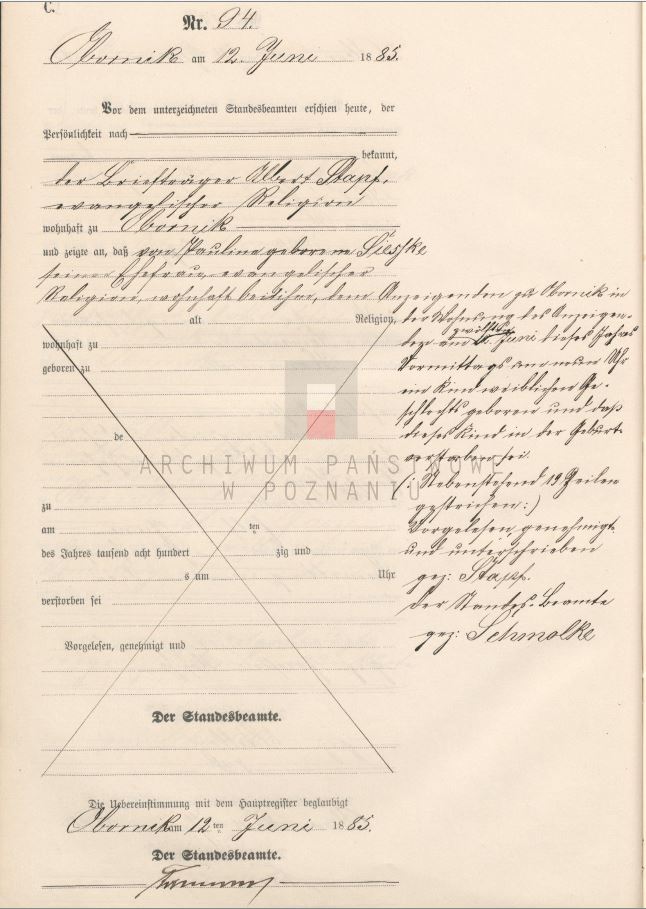 C.
Nr. 94.
Obornik am 12. Juni 1885.
Vor dem unterzeichneten Standesbeamten erschien heute, der
Persönlichkeit nach
bekannt,
der Briefträger Albert Stapf,
evangelischer Religion
wohnhaft zu Obornik
und zeigte an, daß von Pauline geborene
seiner Ehefrau, evangelischer
Religion, wohnhaft bei ihm, dem Anzeigenden zu Obornik in
der Wohnung des Anzeigen-
alt Religion,
zwölften
am Juni dieses Jahres
wohnhaft zu
Vormittags um neun Uhr
geboren zu
ein Kind weiblichen Ge-
schlechts geboren und daß
dieses Kind in der Geburt
de
verstorben sei.
ARCHIWUM PAŃSTWOWE
W POZNANIU
(: Nebenstehend 19 Zeilen
gestrichen :)
zu
Vorgelesen, genehmigt
am ten
und unterschrieben
des Jahres tausend acht hundert zig und
gez: Stapf.
s um Uhr
Der Standes-Beamte
verstorben sei
gez: Schmolke
Vorgelesen, genehmigt und
Der Standesbeamte.
Die Uebereinstimmung mit dem Hauptregister beglaubigt
Obornik am 12ten Juni 1885.
Der Standesbeamte.